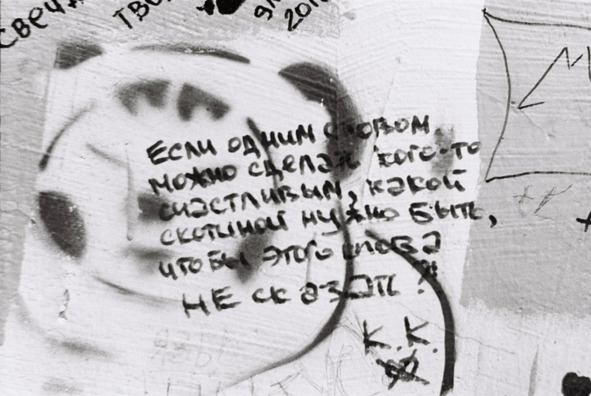 СВЕЧ
ТВО
Если одним словом
можно сделать кого-то
счастливым, какой
скотиной нужно быть,
чтобы этого слова
не сказать?!
К.К.